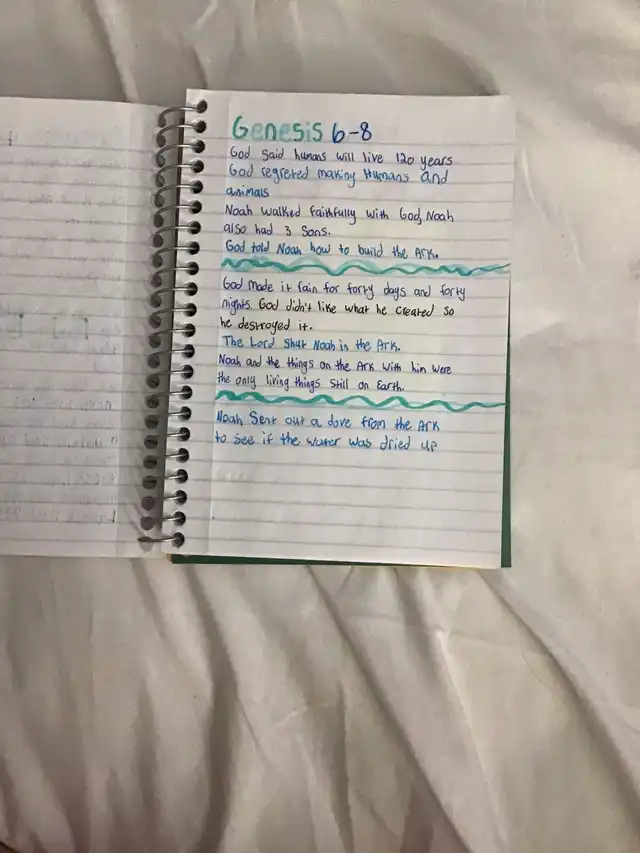 Genesis 6-8
God said humans will live 120 years
God regreted making Humans and
animals
Noah walked faithfully with God, Noah
also had 3 Sons.
God told Noah how to build the Ark.
God made it rain for forty days and forty
nights. God didn't like what he created so
he destroyed it.
The Lord Shut Noah in the Ark.
Noah and the things on the Ark with him were
the only living things still on Earth.
Noah Sent out a dove from the Ark
to see if the water was dried up